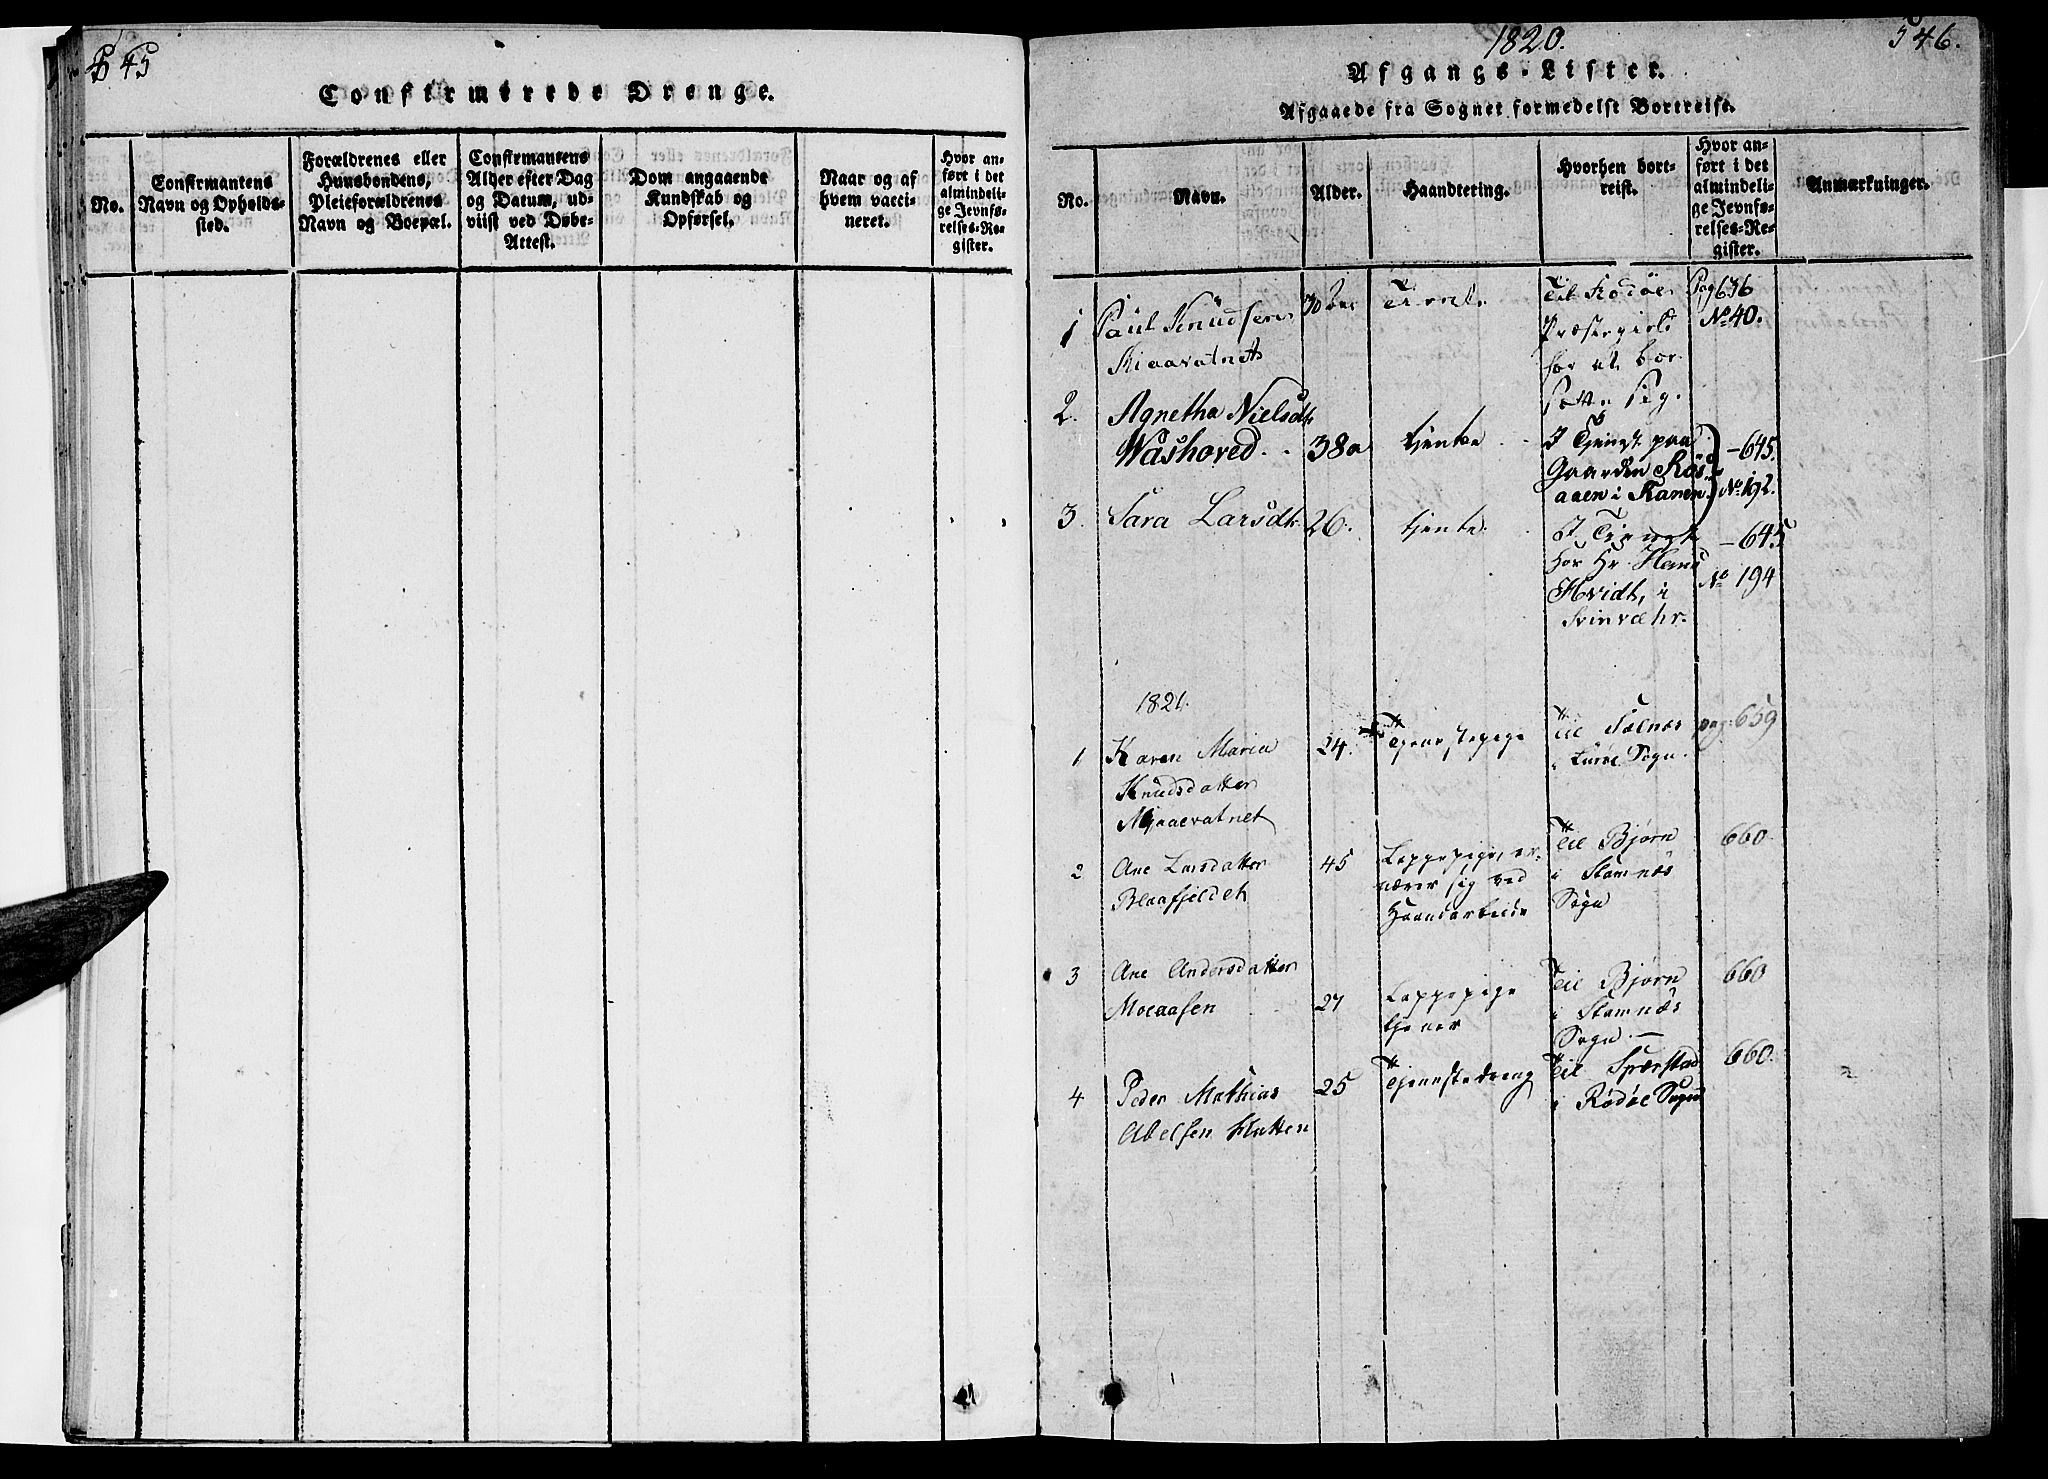 545
Confirmerede Drenge.
No.
Confirmantens
Navn og Opholds-
sted.
Forældrenes eller
Huusbondens,
Pleieforældrenes
Navn og Boepæl.
Confirmantens
Alder efter Dag
og Datum, ud-
viist ved Døbe-
Attest.
Dom angaaende
Kundskab og
Opførsel.
Naar og af
hvem vacci-
neret.
Hvor an-
ført i det
almindeli-
ge Jevnfø-
relses-Re-
gister.
1820.
546.
Afgangs-Lister.
Afgaaede fra Sognet formedelst Bortreise.
No.
Navn.
Alder.
Haandtering.
Hvorhen bort-
reist.
Hvor an-
ført i det
almindeli-
ge Jevnfø-
relses-Re-
gister.
Anmærkninger.
1
Paul Knudsen
30
Tient
Til Rødøe
Præstegield
for at bo
sætte sig.
Pag 636
No 40.
2.
Agnetha Nielsdt.
Wåshoved
38
tjente
I Tjenest paa
Gaarden Røs
aaen i Ranen
-645.
No. 192.
3.
Sara Larsdt.
26.
tjente
I Tjenest
hos Hr. Hans
Hvidt, i
Svinvæhr.
-645
No 194
1821.
1
Karen Maria
Knudsdatter
24.
Tjenestepige
Til Selnæs
i Lurøe Sogn.
pag: 659
2
Ane Larsdatter
Blaafjeldet
45
Lappepige, er-
nærer sig ved
Haandarbeide
Til Bjørn
i Stamnæs
Sogn
660
3
Ane Andersdatter
Moeaasen
27
Lappepige
tjener
Til Bjørn
i Stamnæs
Sogn
660
4
Peder Mathias
Abelsen Flatten
25
Tjenestedreng
Til
i Rødøe Sogn
660.